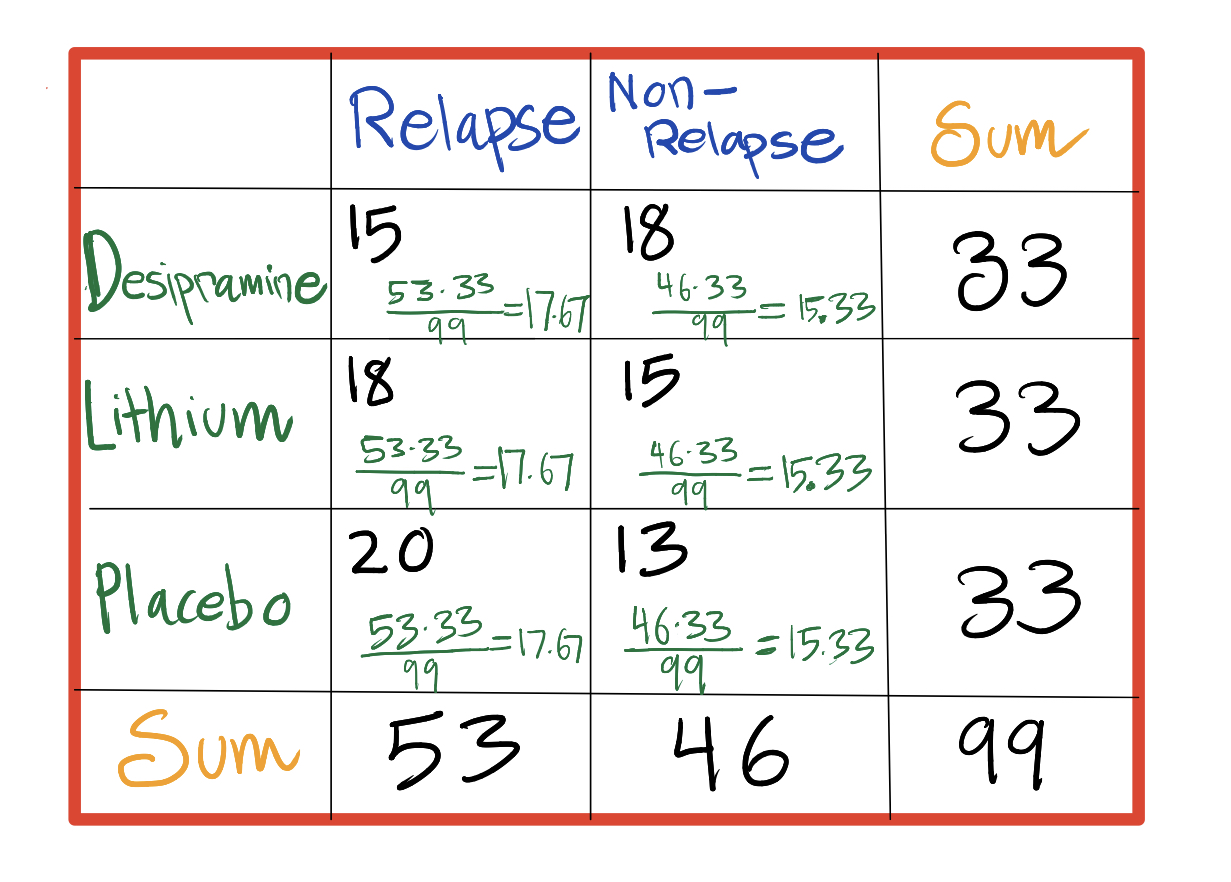 Relapse
Non-
Relapse
Sum
Desipramine
15
53·33
99
=17.67
18
46·33
99
=15.33
33
Lithium
18
53·33
99
=17.67
15
46·33
99
=15.33
33
Placebo
20
53·33
99
=17.67
13
46·33
99
=15.33
33
Sum
53
46
99